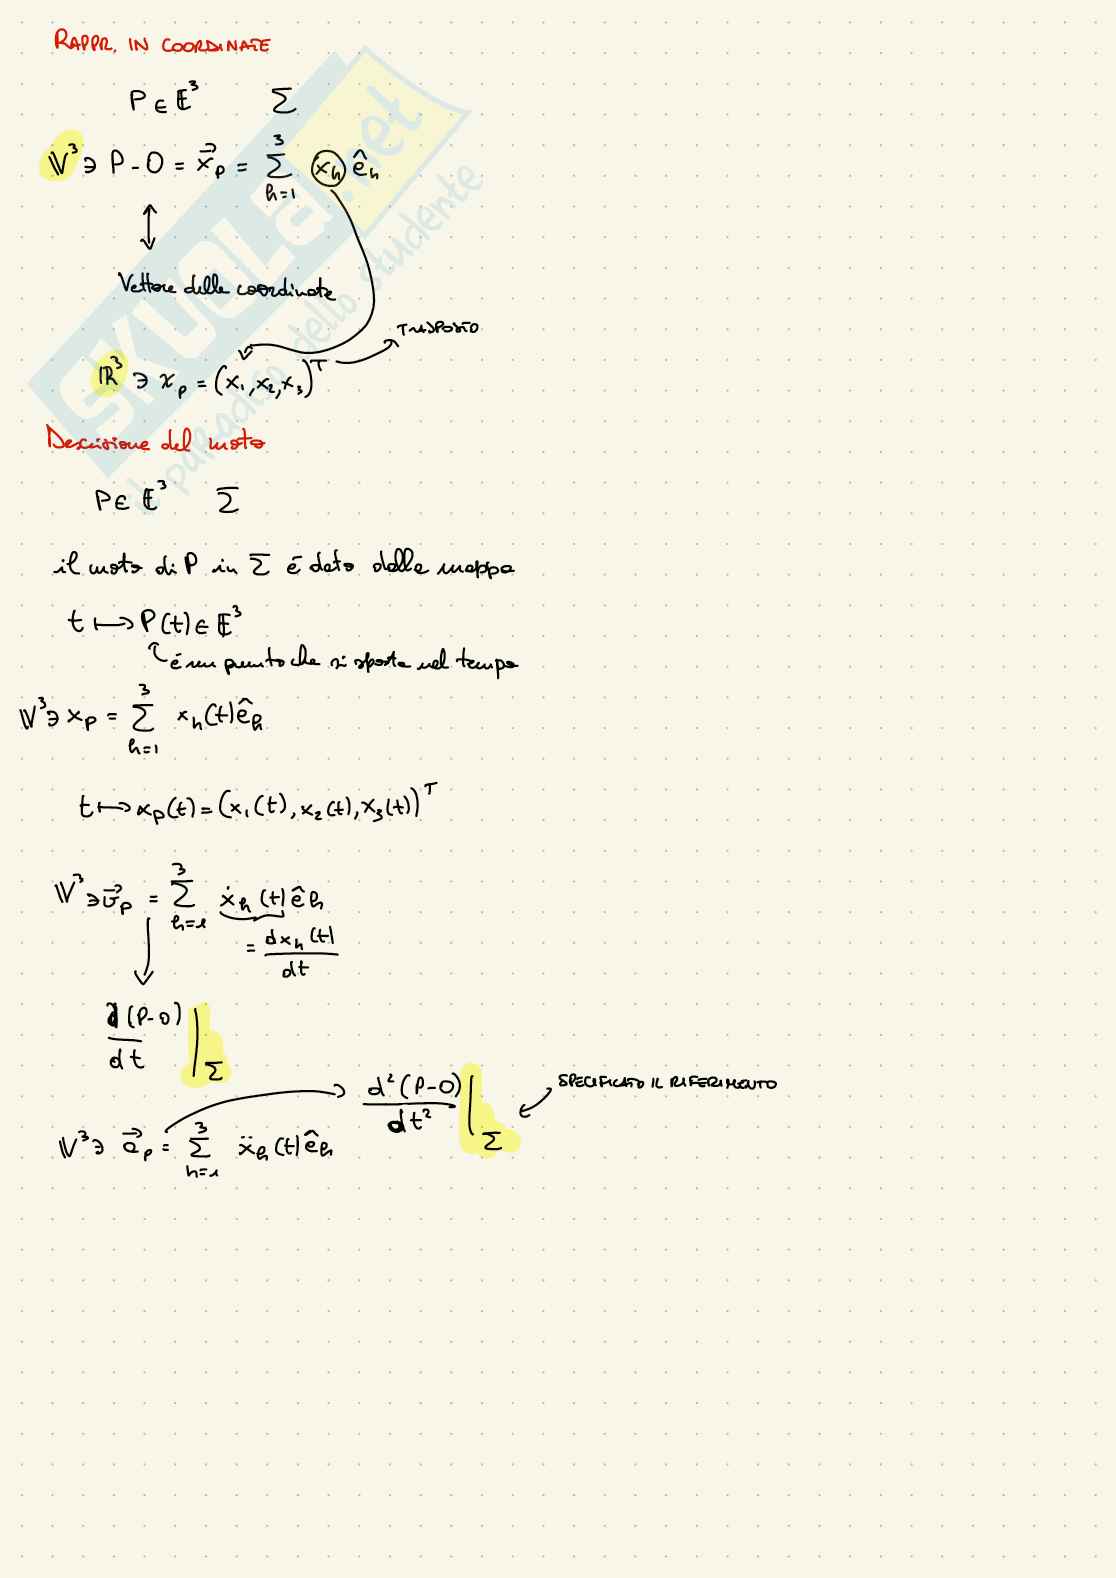 RAPPR. IN COORDINATE
P ∈ 𝔼³ Σ
𝕍³ ∋ P - O = x⃗_P = Σ_{h=1}^{3} x_h ê_h
Vettore delle coordinate
TRASPOSTO
ℝ³ ∋ x_P = (x₁, x₂, x₃)^T
Descrizione del moto
P ∈ 𝔼³ Σ
il moto di P in Σ é dato dalla mappa
t ⟼ P(t) ∈ 𝔼³
é un punto che si sposta nel tempo
𝕍³ ∋ x_P = Σ_{h=1}^{3} x_h(t) ê_h
t ⟼ x_P(t) = (x₁(t), x₂(t), x₃(t))^T
𝕍³ ∋ v⃗_P = Σ_{h=1}^{3} ẋ_h(t) ê_h
= dx_h(t)/dt
d(P-O)/dt |_Σ
d²(P-O)/dt² |_Σ SPECIFICATO IL RIFERIMENTO
𝕍³ ∋ a⃗_P = Σ_{h=1}^{3} ẍ_h(t) ê_h
SKUOLA.net
il paradiso dello studente